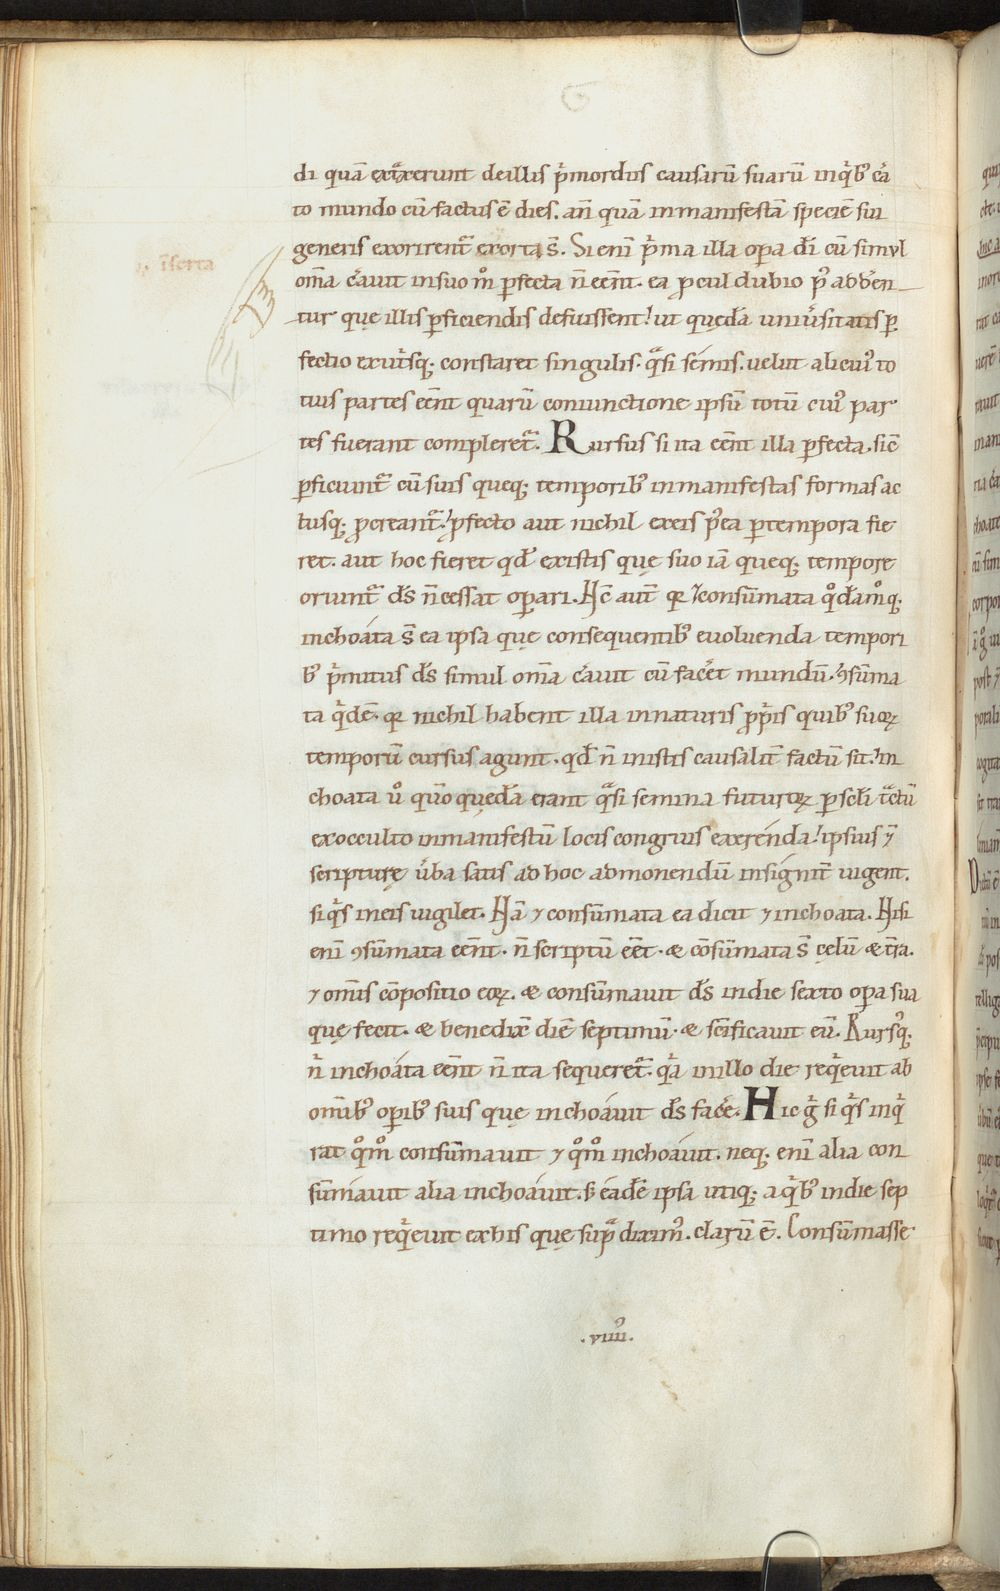 ı̣. īserta
di quā extᵃxerunt deillis pⁱmordiis causarū suarū inqⁱbꝰ cͣa
to mundo cū factus ē dies. an̄ quā inmanifestā speciē sui
generis exorirent᷑ exorta s̄. Si eni᷑ pⁱma illa opera dī cū simul
om̄a cͤauit insuo mͦ ꝑfecta n̄ eēnt. ea ꝓcul dubio pꝰ adderen
tur que illis ꝑficiendis defuissent! ut quędā uniuͥsitatis ꝑ
fectio exutͥsq; constaret singulis. qᵃsi semis. uelut alicuiꝰ to
tius partes eēnt quarū coniunctione ipsū totū cuiꝰ par
tes fuerant compleret᷑. Rursus si ita eēnt illa ꝑfecta. sic̄
ꝑficiunt᷑ cū suis queq; temporibꝰ inmanifestas formas ac
tusq; ꝓcreant᷑! ꝓfecto aut nichil exeis pͦea ꝑtempora fie
ret. aut hoc fieret qđ existis quę suo iā queq; tempore
oriunt᷑ dš n̄ cessat operari. Hc̄ aut̄ qꝛ ⁊consūmata qͦdāmͦq;
inchoata s̄ ea ipsa quę consequentibꝰ euoluenda tempori
bꝰ pⁱmitus dš simul om̄a cͤauit cū facͤet mundū. ꝯsūma
ta qⁱdē. qꝛ nichil habent illa innaturis ꝓpⁱis quibꝰ suoꝝ
temporū cursus agunt. qđ n̄ inistis causalit̄ factū sit! in
choata uͦ quō quędā erant qᵃsi semina futuroꝝ ꝑ scli tᵃctū
exocculto inmanifestū locis congruis exerénda! ipsius ⁊
scripturę uͥba satis ad hoc admonendū insignit̄ uigent.
si qⁱs ineis uigilet. Nā ⁊ consūmata ea dicit ⁊ inchoata. Nisi
eni᷑ ꝯsūmata eēnt. n̄ scriptū eēt. & cōsūmata s̄ cęlū & t̄ra.
⁊ om̄is cōpositio eoꝝ. & consūmauit dš indie sexto opera sua
quę fecit. & benedixͭ diē septimū. & scīficauit eū. Rursꝰq;
nͥ inchoáta eēnt n̄ ita sequeret᷑. qⁱa inillo die reqⁱeuit ab
omībꝰ operibꝰ suis quę inchoáuit dš facͤe. Hic gͥ si qⁱs inqⁱ
rat qͦmͦ consūmauit ⁊ qͦmͦ inchoáuit. neq; eni᷑ alia con
sūmauit alia inchoáuit. s; eadē ipsa utiq; aqⁱbꝰ indie sep
timo reqⁱeuit exhis quę supᵃ diximꝰ. clarū ē. Consūmasse
.viiiꝰ.